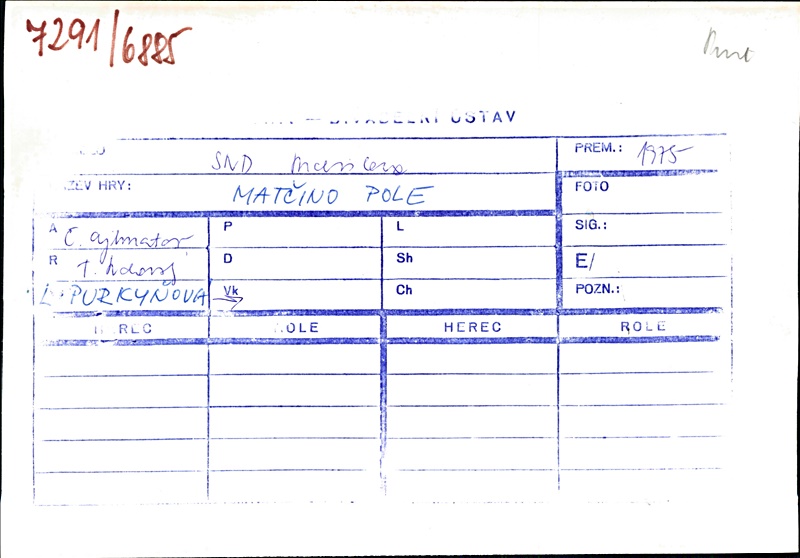 7291/6885
DIVADELNÍ ÚSTAV
SND
PREM.: 1975
NÁZEV HRY: MATČINO POLE
FOTO
A Č. Ajtmatov
P
L
SIG.:
R
D
Sh
E/
L. PURKYŇOVÁ
Vk
Ch
POZN.:
HEREC
ROLE
HEREC
ROLE